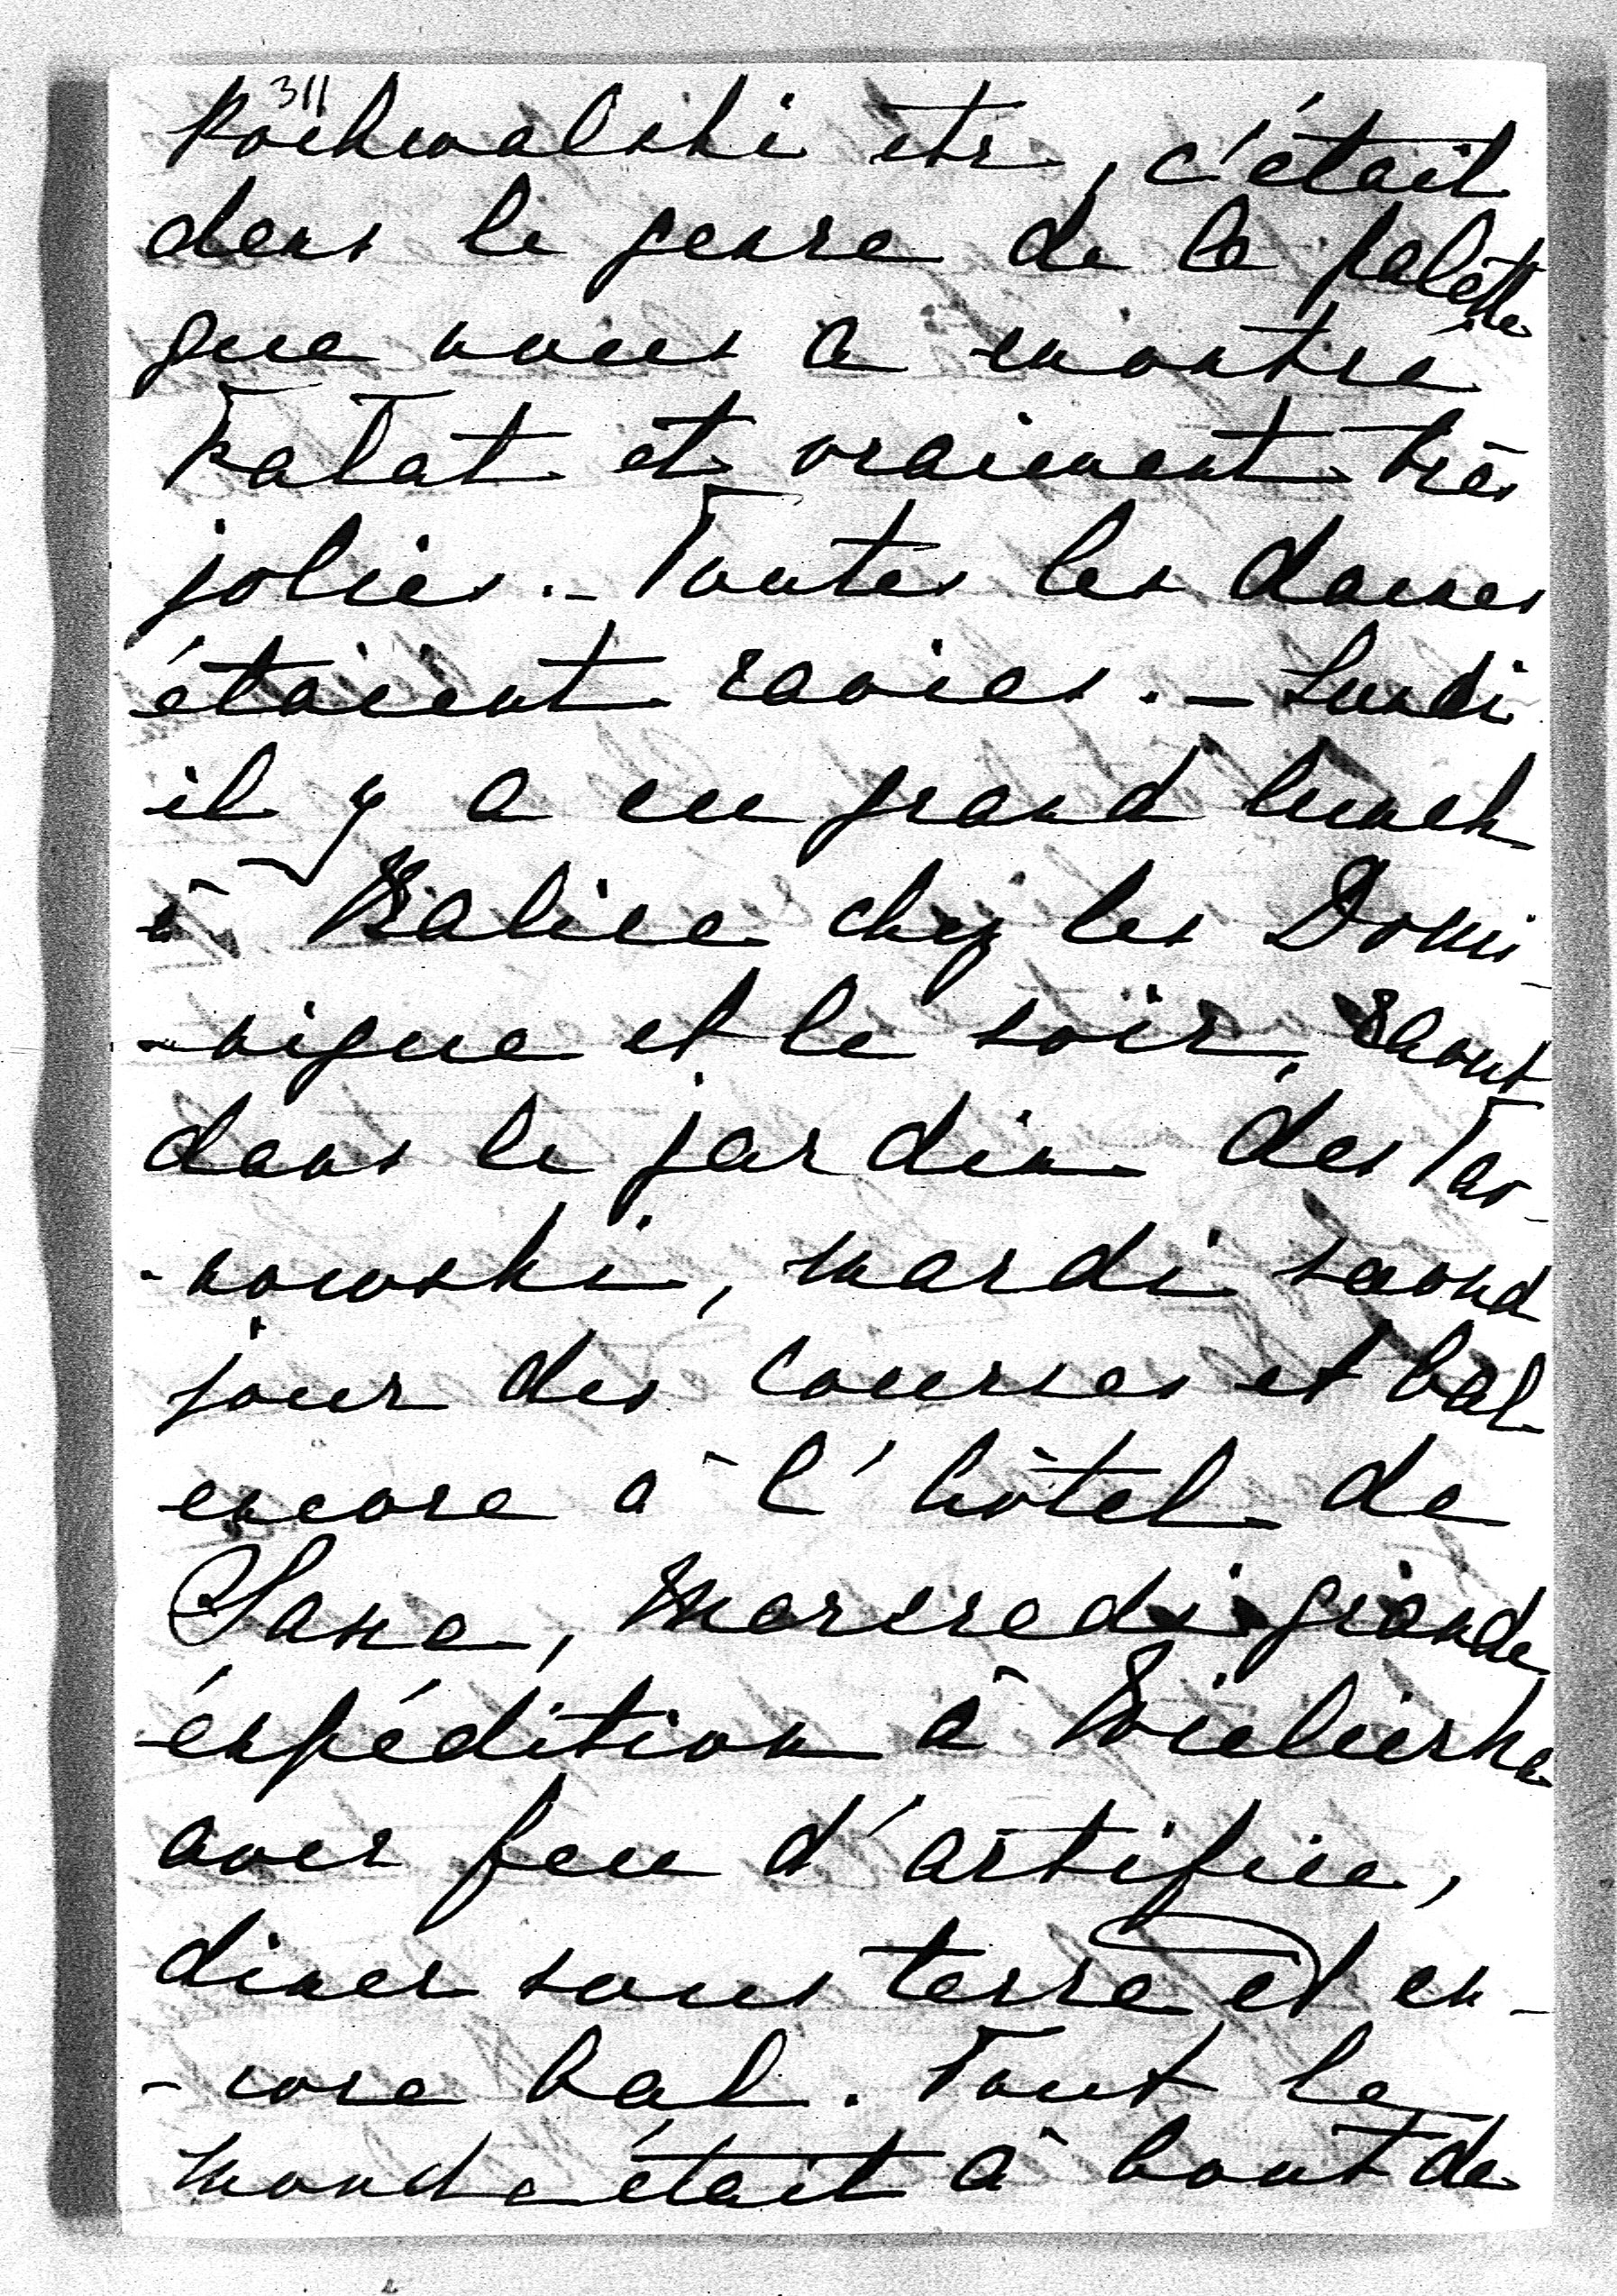 311
Pochwalski etc, c'était
dans le genre de la palette
que nous a montré
Fałat et vraiment très
jolies. - Toutes les dames
étaient ravies. - Lundi
il y a eu grand lunch
à Balice chez les Domi-
-nique et le soir, raout
dans le jardin des Tar-
-nowski, mardi second
jour des courses et bal
encore à l'hôtel de
Saxe, Mercredi grande
éxpédition à Wieliczka
avec feu d'artifice,
diner sous terre et en-
-core bal. Tout le
monde était à bout de